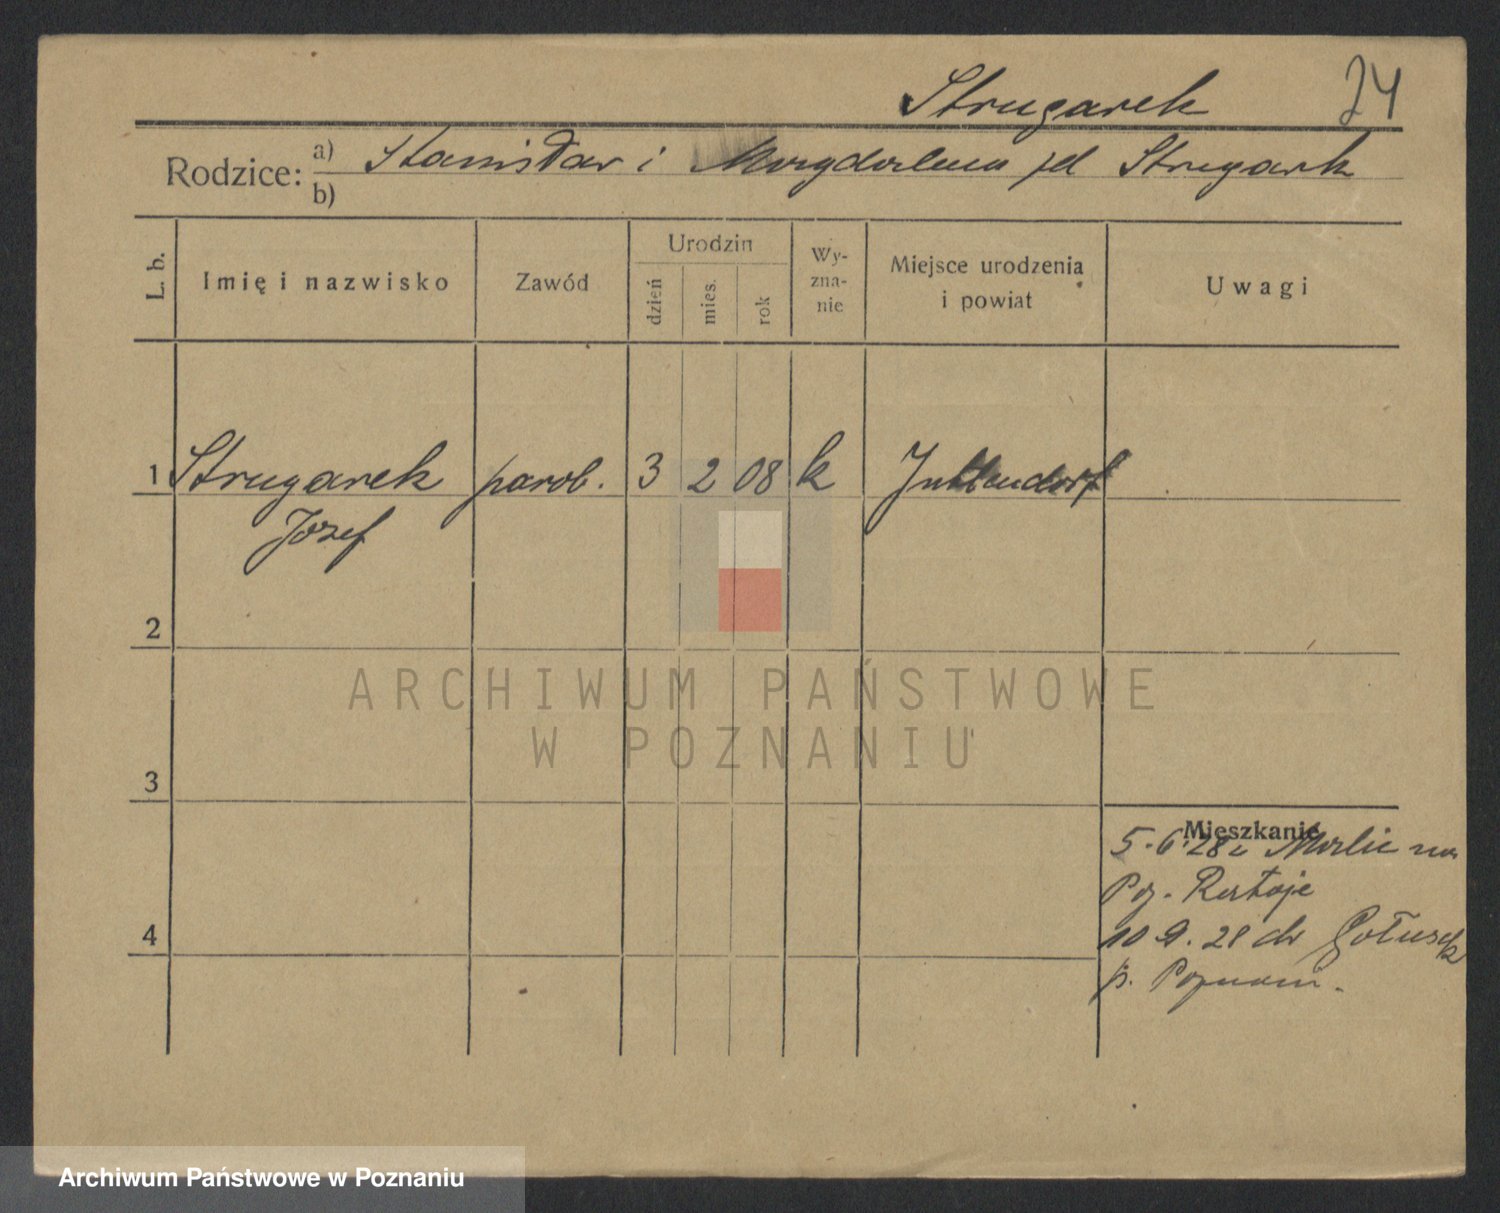 Strugarek 24
Rodzice: a) Stanisław i Magdalena
b) Strugarek
L. b. Imię i nazwisko Zawód Urodzin dzień mies. rok Wy-zna-nie Miejsce urodzenia i powiat Uwagi
1 Strugarek parob. 3 2 08 k
Józef
2
ARCHIWUM PAŃSTWOWE
W POZNANIU
3
Mieszkanie
5.6.28 z
Poz. Rataje
4 10 9. 28 do Gołusek
p. Poznań.
Archiwum Państwowe w Poznaniu